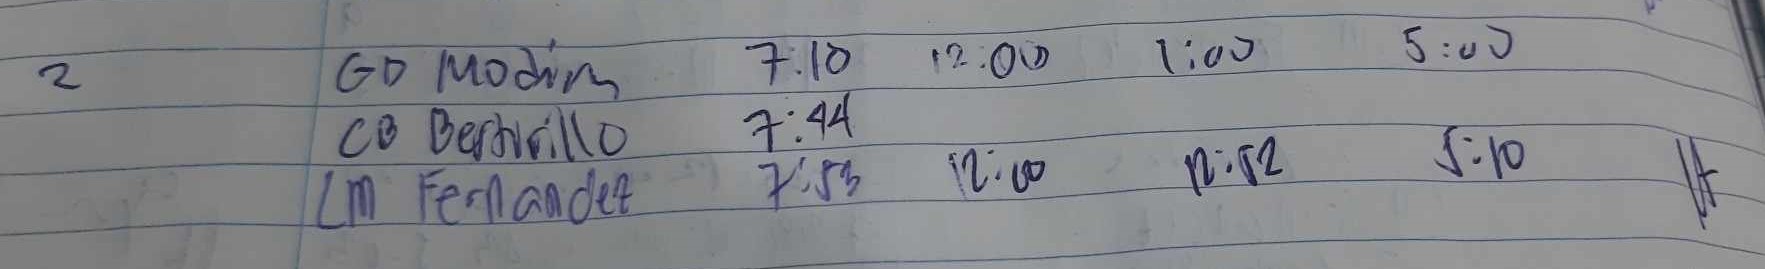 2 GD Modin 7:10 12:00 1:00 5:00
CB Bertirillo 7:44
LM Fernandez 7:53 12:00 12:52 5:10